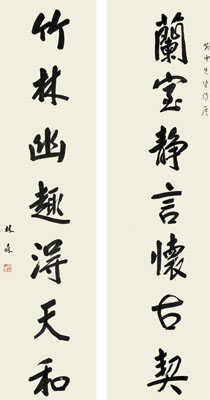 蘭室静言懷古契
竹林幽趣得天和
林森